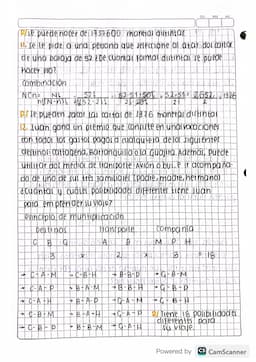 R/ Se puede hacer de 1937600 maneras distintas
11. Se le pide a una persona que seleccione al azar dos cartas
de una baraja de 52 ¿De cuantas formas distintas se puede
hacer Ho?
Combinación
R/ Se pueden sacar las cartas de 1326 maneras distintas
12. Juan gano un premio que consiste en unas vacaciones
con todos los gastos pagos a cualquiera de los siguientes
destinos: Cartagena, Barranquilla o la Guajira. Además, puede
utilizar dos medios de transporte: Avión o bus. Y ir acompaña-
do de uno de sus tres familiares (padre, madre, hermano)
¿cuantas y cuáles posibilidades diferentes tiene Juan
para emprender su viaje?
Principio de multiplicación
Destinos transporte compañia
C B G A B M P H
3 x 2 x 3 = 18
→ C-A-M → C-B-H → B-B-P → G-B-M
→ C-A-P → B-A-M → B-B-H → G-B-P
→ C-A-H → B-A-P → G-A-M → G-B-H
→ C-B-M → B-A-H → G-A-P R/ Tiene 18 posibilidades
→ C-B-P → B-B-M → G-A-H diferentes para su viaje.
Powered by CS CamScanner